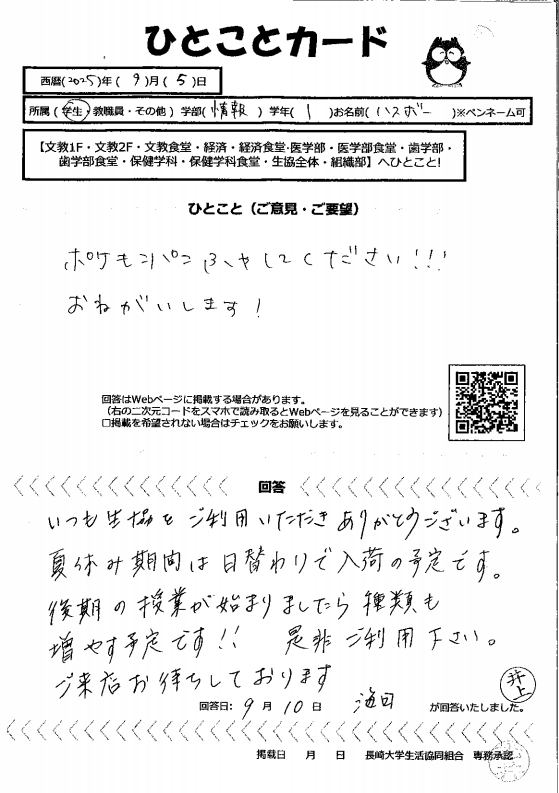 ひとことカード
西暦(2025)年( 9 )月( 5 )日
所属( 学生・教職員・その他 ) 学部( 情報 ) 学年( 1 )お名前( ハスボー )※ペンネーム可
【文教1F・文教2F・文教食堂・経済・経済食堂・医学部・医学部食堂・歯学部・
歯学部食堂・保健学科・保健学科食堂・生協全体・組織部】へひとこと!
ひとこと(ご意見・ご要望)
ポケモンパンふやしてください!!!
おねがいします!
回答はWebページに掲載する場合があります。
(右の二次元コードをスマホで読み取るとWebページを見ることができます)
□掲載を希望されない場合はチェックをお願いします。
回答
いつも生協をご利用いただきありがとうございます。
夏休み期間は日替わりで入荷の予定です。
後期の授業が始まりましたら種類も
増やす予定です!! 是非ご利用下さい。
ご来店お待ちしております
井上
回答日: 9 月 10 日 が回答いたしました。
掲載日 月 日 長崎大学生活協同組合 専務承認